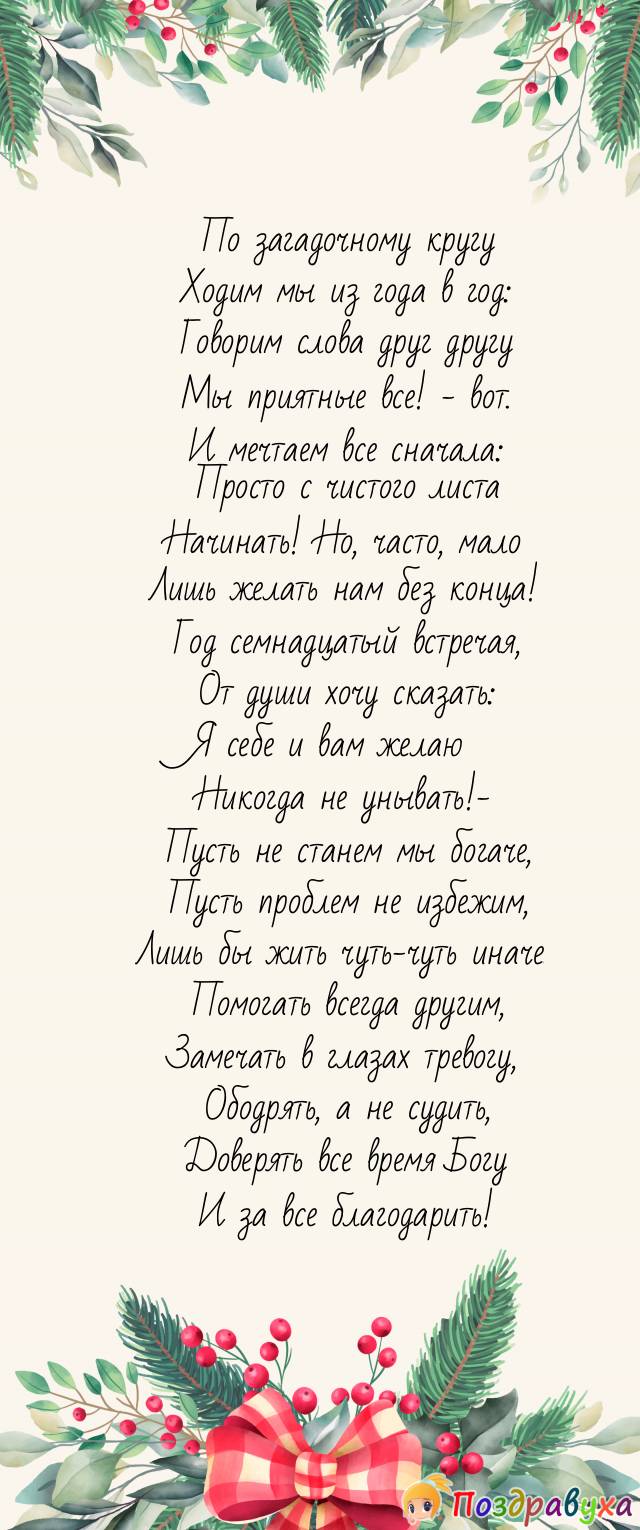 По загадочному кругу
Ходим мы из года в год:
Говорим слова друг другу
Мы приятные все! - вот.
И мечтаем все сначала:
Просто с чистого листа
Начинать! Но, часто, мало
Лишь желать нам без конца!
Год семнадцатый встречая,
От души хочу сказать:
Я себе и вам желаю
Никогда не унывать!-
Пусть не станем мы богаче,
Пусть проблем не избежим,
Лишь бы жить чуть-чуть иначе
Помогать всегда другим,
Замечать в глазах тревогу,
Ободрять, а не судить,
Доверять все время Богу
И за все благодарить!
Поздравуха